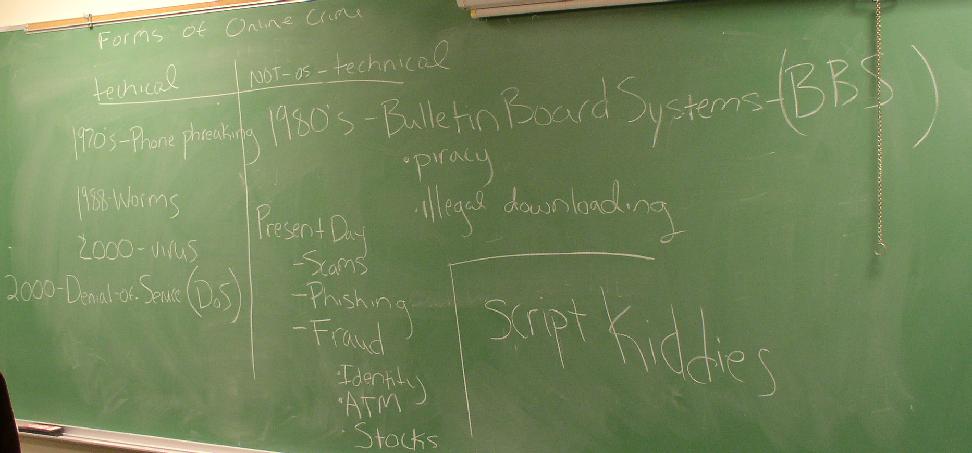 Forms of Online Crime
techical
1970's-Phone phreaking
1988-Worms
2000-virus
2000-Denial-of-Service (DoS)
NOT-as-technical
1980's-Bulletin Board Systems-(BBS)
·piracy
·illegal downloading
Present Day
-Scams
-Phishing
-Fraud
·Identity
·ATM
·Stocks
Script Kiddies